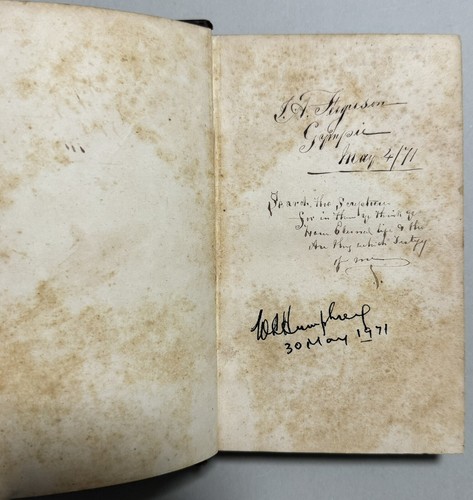 J. A. Ferguson
Gympie
May 4/71
Search the Scriptures
For in them ye think ye
have Eternal life & they
are they which testify
of me
J.
Humphrey
30 May 1971